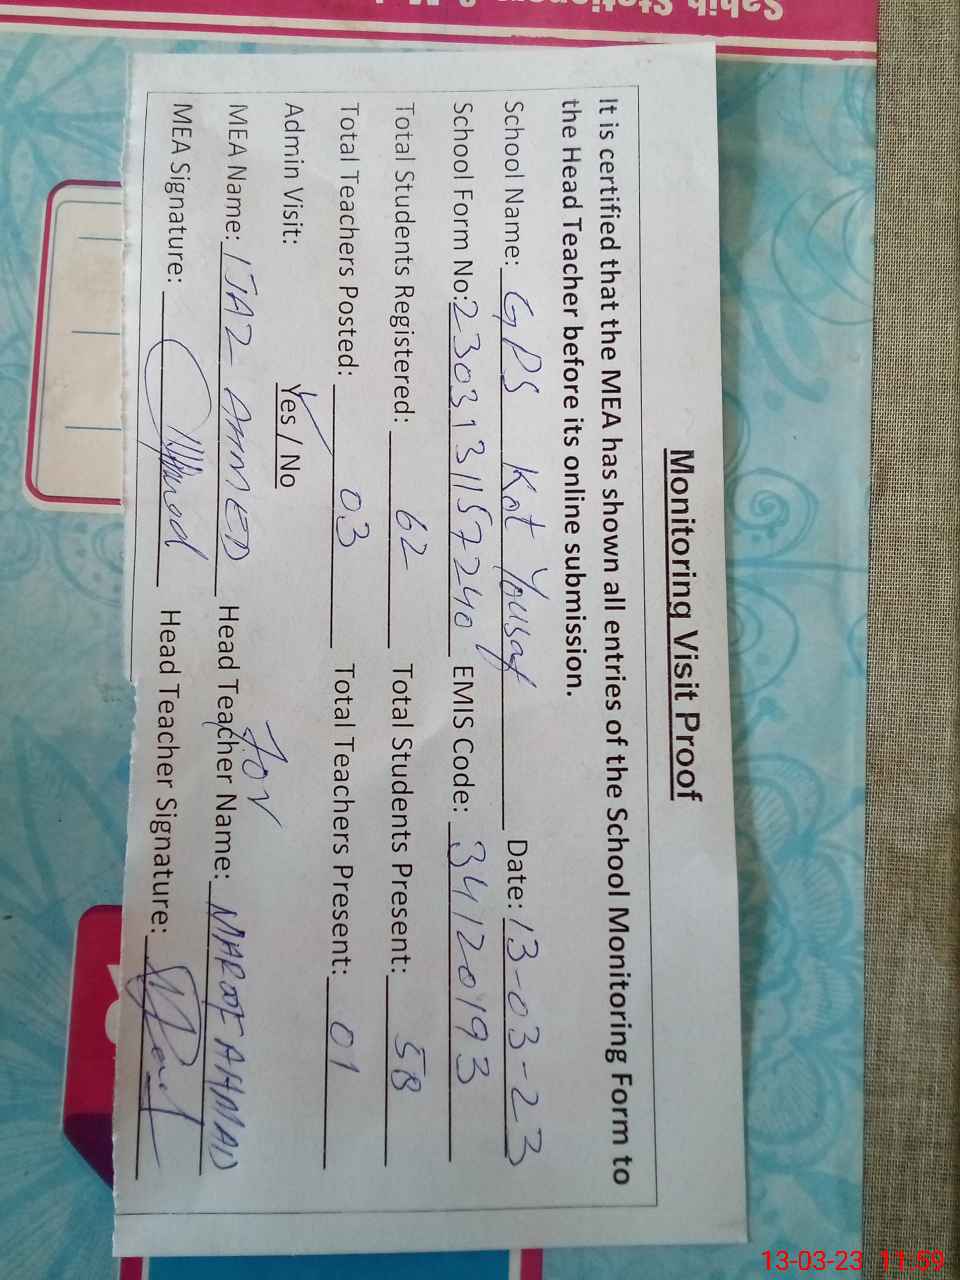 Monitoring Visit Proof
It is certified that the MEA has shown all entries of the School Monitoring Form to
the Head Teacher before its online submission.
School Name: GPS Kot Yousaf Date: 13-03-23
School Form No: 2303131157240 EMIS Code: 34120193
Total Students Registered: 62 Total Students Present: 58
Total Teachers Posted: 03 Total Teachers Present: 01
Admin Visit: Yes / No
MEA Name: IJAZ AHMED Head Teacher Name: MAROOF AHMAD
MEA Signature: Head Teacher Signature:
13-03-23 11:59